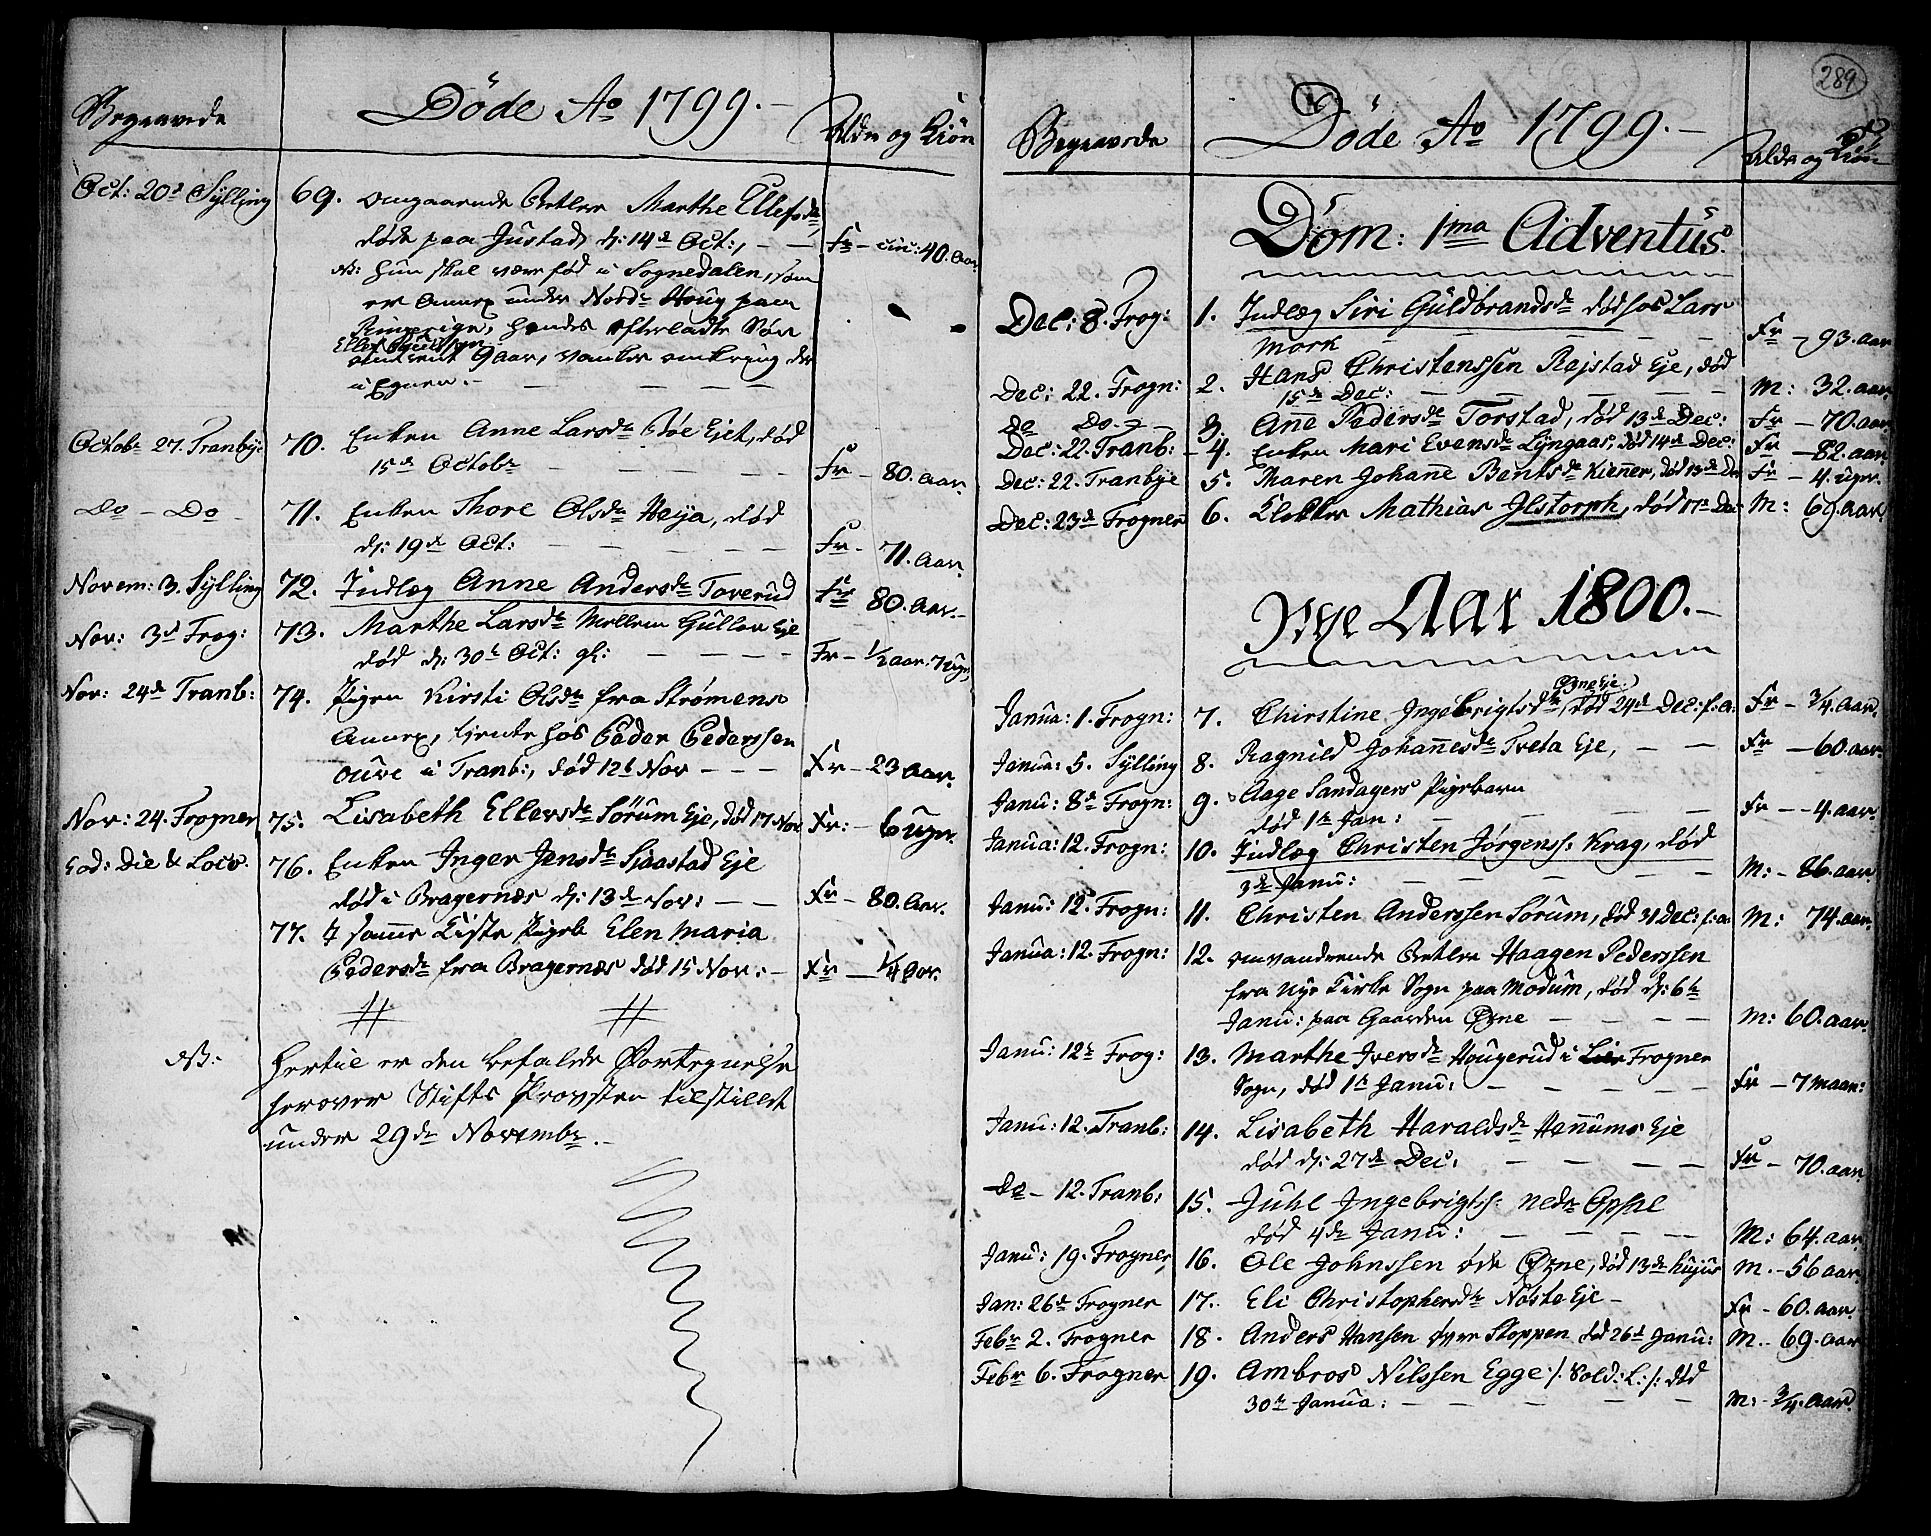 Begravede
Døde Ao 1799.-
Alder og Kiøn
Oct: 20de Sylling 69. omgaaende Betler Marthe Ellefsdr
døde paa Justad d: 14de Oct:, Fr - circ: 40. Aar
NB: hun skal være fød i Sognedalen, som
er Annex under Nordr Houg paa
Ringerige, hendes efterladte Søn
omtrent 9 aar, vanker omkring der
i Egnen. -
Octobr 27. Tranbye 70. Enken Anne Larsdr Bøe Ejet, død
15de Octobr Fr - 80. Aar.
Do - Do - 71. Enken Thore Olsdr Heija, død
d: 19de Oct: Fr - 71. Aar.
Novem: 3. Sylling 72. Indlæg Anne Andersdr Toverud Fr 80. Aar.
Nor: 3d Frog: 73. Marthe Larsdr Mellem Gullou Eje
død d: 30te Oct: gl: Fr - 1/2 aar. 7 ugr.
Nor: 24de Tranb: 74. Pigen Kirsti Olsdr fra Strømens
Annex, tjente hos Peder Pederssen
Ouve i Tranb:, død 12te Nov - Fr - 23 Aar.
Nor: 24. Frogner 75. Lisabeth Ellersdr Sørum Eje, død 17 Nov Fr: - 6 ugr.
Eod: Die & Loco. 76. Enken Inger Jensdr Sjaastad Eje
død i Bragernæs d: 13de Nov: Fr - 80. Aar.
77. I samme Kiste Pigeb Elen Maria
Pedersdr fra Bragernæs død 15 Nov: - Fr - 1/4 Aar.
NB: Hertil er den befalede Fortegnelse
herover Stifts Provsten tilstillet
under 29de Novembr. -
289
Begravede
Døde Ao 1799.-
Alder og Kiøn
Dom: 1ma Adventus.
Dec: 8. Frog: 1. Indlæg Siri Guldbrandsdr død hos Lars
Mork Fr - 93. aar
Dec: 22. Frogn: 2. Hans Christenssen Rejstad Eje, død
15de Dec: M: 32. aar.
Do Do - 3. Ane Pedersdr Torstad, død 13de Dec: Fr - 70. aar.
Dec: 22. Tranb: - 4. Enken Mari Evensdr Lyngaas, død 14de Dec: Fr - 82. aar.
Dec: 22. Tranbye 5. Maren Johane Bentsdr Kiener, død 13de Dec Fr - 4. ugr.
Dec: 23de Frogner 6. Klokker Mathias Ilstorph, død 17de Dec M: 69. aar.
Nye Aar 1800.-
Janua: 1. Frogn: 7. Chirstine Ingebrigtsdr, død 24de Dec: f.a. Fr - 3/4. aar.
Øzne Eje.
Janua: 5. Sylling 8. Ragnild Johanesdr Tveta Eje, Fr - 60. aar
Janu: 8de Frogn: 9. Aage Sandagers Pigebarn
død 1te Jan: Fr - - 4. aar.
Janua: 12. Frogn: 10. Indlæg Christen Jørgens: Krag, død
3de Janu: M: - 86. aar.
Janu: 12. Frogn: 11. Christen Anderssen Sørum, død 31 Dec: f:a: M: 74. aar.
Janua: 12. Frogn: 12. omvandrende Betler Haagen Pederssen
fra Nye Kirke Sogn paa Modum, død d: 6te
Janu: paa Gaarden Øzne M: 60. aar.
Janu: 12te Frog: 13. Marthe Iversdr Hougerud i Lier Frogner
Sogn, død 1te Janu: Fr - 7 maan:
Janu: 12. Tranb: 14. Lisabeth Haraldsdr Hanums Eje
død d: 27de Dec: Fr - 70. aar
Do - 12. Tranb: 15. Juhl Ingebrigts: nedr Oppel
død 4de Janu: M: 64. aar
Janu: 19. Frogner 16. Ole Johnssen øde Øzne, død 13de hujus M. - 56 aar.
Jan: 26de Frogner 17. Eli Christophersdr Nøste Eje - Fr - 60. aar.
Febr 2. Frogner 18. Anders Hansen Stoppen død 26de Janu: M. - 69. aar
Febr 6. Frogner 19. Ambros Nilssen Egge /: Sold: L: /: død
30te Janua: M: - 3/4. aar.